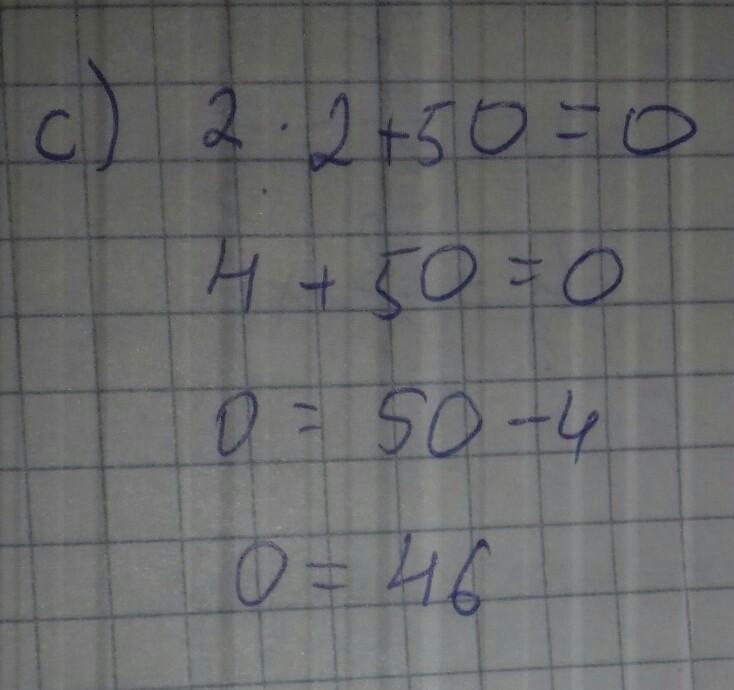 c) 2 · 2 + 50 = 0
4 + 50 = 0
0 = 50 - 4
0 = 46